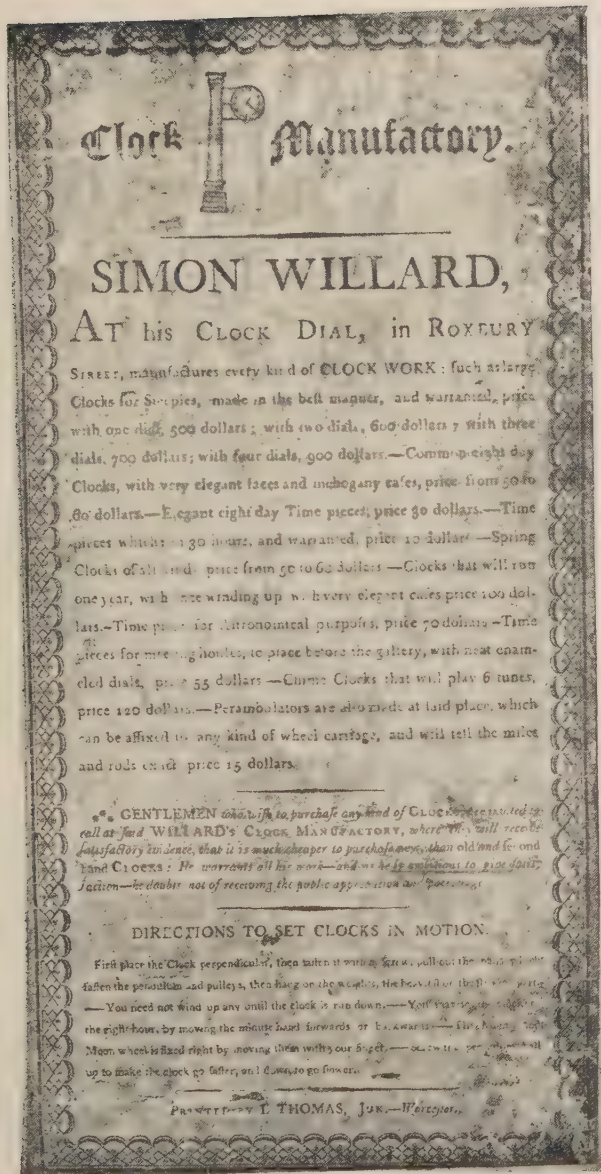 Clock Manufactory.
SIMON WILLARD,
AT his CLOCK DIAL, in ROXBURY
STREET, manufactures every kind of CLOCK WORK: ſuch as large
Clocks for Steeples, made in the beſt manner, and warranted, price
with one dial, 500 dollars; with two dials, 600 dollars; with three
dials, 700 dollars; with four dials, 900 dollars.—Common eight day
Clocks, with very elegant faces and mehogany caſes, price from 50 to
60 dollars.—Elegant eight day Time pieces, price 30 dollars.—Time
pieces which 30 hours, and warranted, price 10 dollars—Spring
Clocks of all price from 50 to 60 dollars—Clocks that will run
one year, with winding up with very elegant caſes price 100 dol-
lars.—Time for Aſtronomical purpoſes, price 70 dollars—Time
pieces for meeting houſes, to place before the gallery, with neat enam-
eled dials, price 55 dollars—Chime Clocks that will play 6 tunes,
price 120 dollars.—Perambulators are alſo made at ſaid place, which
can be affixed to any kind of wheel carriage, and will tell the miles
and rods exact price 15 dollars.
GENTLEMEN who wiſh to purchaſe any kind of CLOCKS are invited to
call at ſaid WILLARD'S CLOCK MANUFACTORY, where they will receive
ſatisfactory evidence, that it is much cheaper to purchaſe new, than old and ſecond
hand CLOCKS: He warrants all his work—and as he is ambitious to give ſatis-
faction—he doubts not of receiving the public approbation and
DIRECTIONS TO SET CLOCKS IN MOTION.
Firſt place the Clock perpendicular, then faſten it with pull out the
faſten the pendulum and pulleys, then hang on the weights, the heavieſt on the
—You need not wind up any until the clock is run down.—
the right hour, by moving the minute hand forwards or backwards—
Moon wheel is fixed right by moving them with your finger—
up to make the clock go faſter, and down to go ſlower.
PRINTED BY I. THOMAS, JUN.—Worceſter.